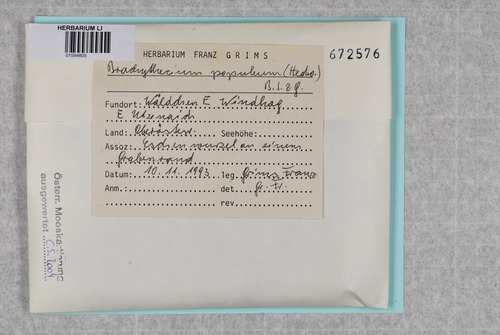 HERBARIUM LI
01594805
HERBARIUM FRANZ GRIMS
672576
Brachythecium populeum (Hedw.)
B.S. & G.
Fundort: Wäldchen E. Windhag
E
Land: Oberösterr. Seehöhe:
Assoz: Eschenwurzel an einem
Grabenrand
Datum: 10.11.1993 leg. Grims Franz
Anm.: det. Gr. Fr.
rev.
Österr. Mooskartierung
ausgewertet